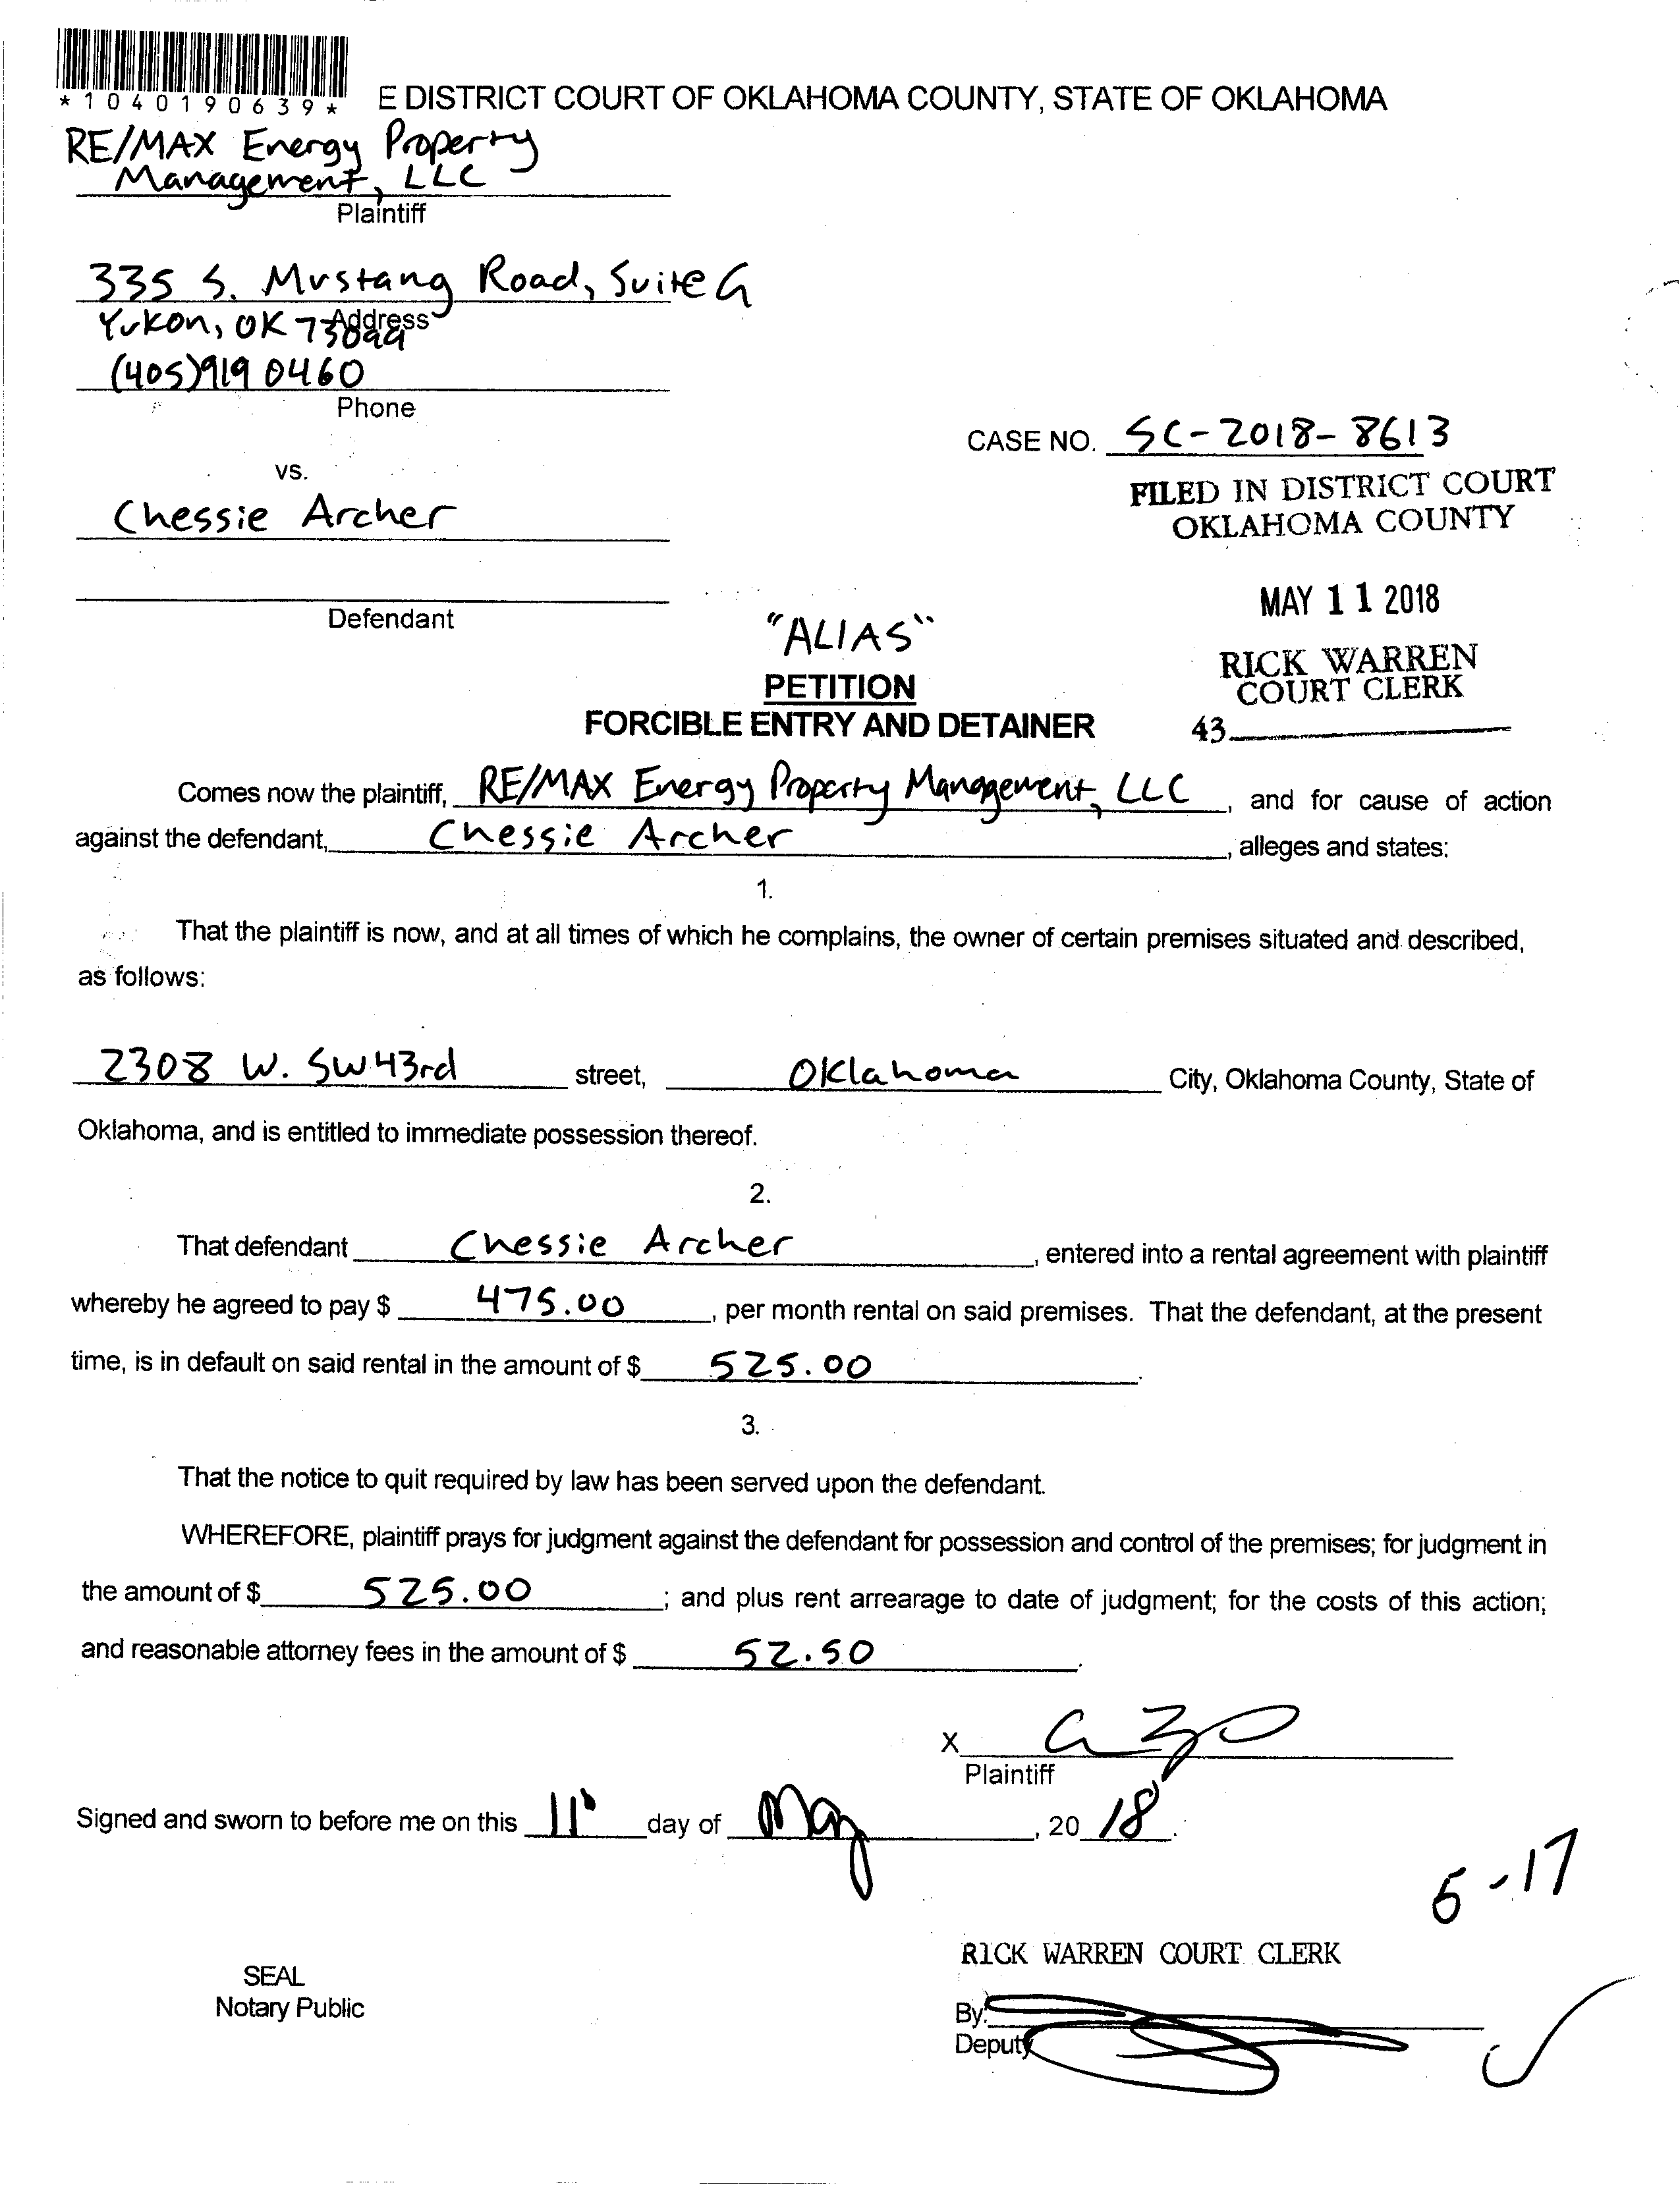 *1040190639*
E DISTRICT COURT OF OKLAHOMA COUNTY, STATE OF OKLAHOMA
RE/MAX Energy Property
Management, LLC
Plaintiff
335 S. Mustang Road, Suite G
Address
Yukon, OK 73099
(405)919 0460
Phone
CASE NO. SC-2018-8613
vs.
FILED IN DISTRICT COURT
OKLAHOMA COUNTY
Chessie Archer
MAY 11 2018
Defendant
"ALIAS"
RICK WARREN
COURT CLERK
PETITION
FORCIBLE ENTRY AND DETAINER
43
Comes now the plaintiff, RE/MAX Energy Property Management, LLC, and for cause of action
against the defendant, Chessie Archer, alleges and states:
1.
That the plaintiff is now, and at all times of which he complains, the owner of certain premises situated and described,
as follows:
2308 W. SW 43rd street, Oklahoma City, Oklahoma County, State of
Oklahoma, and is entitled to immediate possession thereof.
2.
That defendant Chessie Archer, entered into a rental agreement with plaintiff
whereby he agreed to pay $ 475.00, per month rental on said premises. That the defendant, at the present
time, is in default on said rental in the amount of $ 525.00.
3.
That the notice to quit required by law has been served upon the defendant.
WHEREFORE, plaintiff prays for judgment against the defendant for possession and control of the premises; for judgment in
the amount of $ 525.00; and plus rent arrearage to date of judgment; for the costs of this action;
and reasonable attorney fees in the amount of $ 52.50.
X
Plaintiff
Signed and sworn to before me on this 11 day of May, 20 18.
5-17
RICK WARREN COURT CLERK
SEAL
Notary Public
By:
Deputy